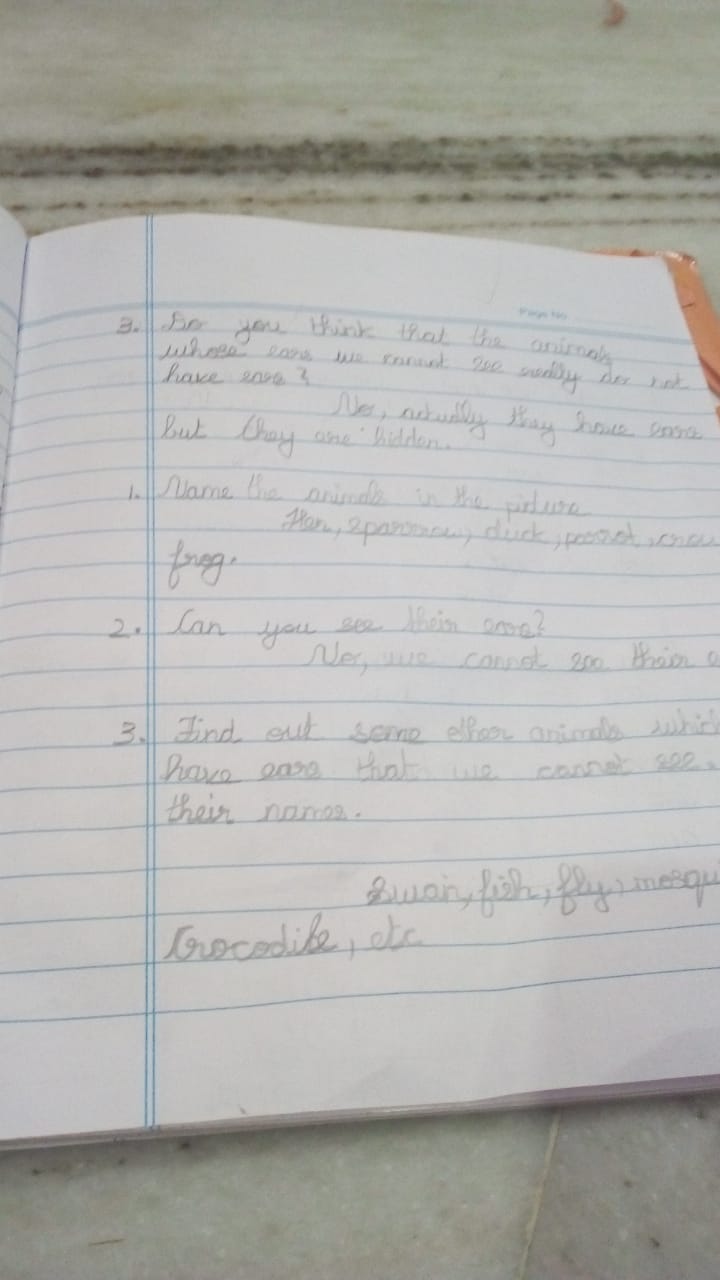 Page No
3. Do you think that the animals
whose ears we cannot see really do not
have ears?
No, actually they have ears
but they are hidden.
1. Name the animals in the picture
Hen, sparrow, duck, parrot, crow
frog.
2. Can you see their ears?
No, we cannot see their
3. Find out some other animals which
have ears that we cannot see.
their names.
Swan, fish, fly, mosqui
Crocodile, etc